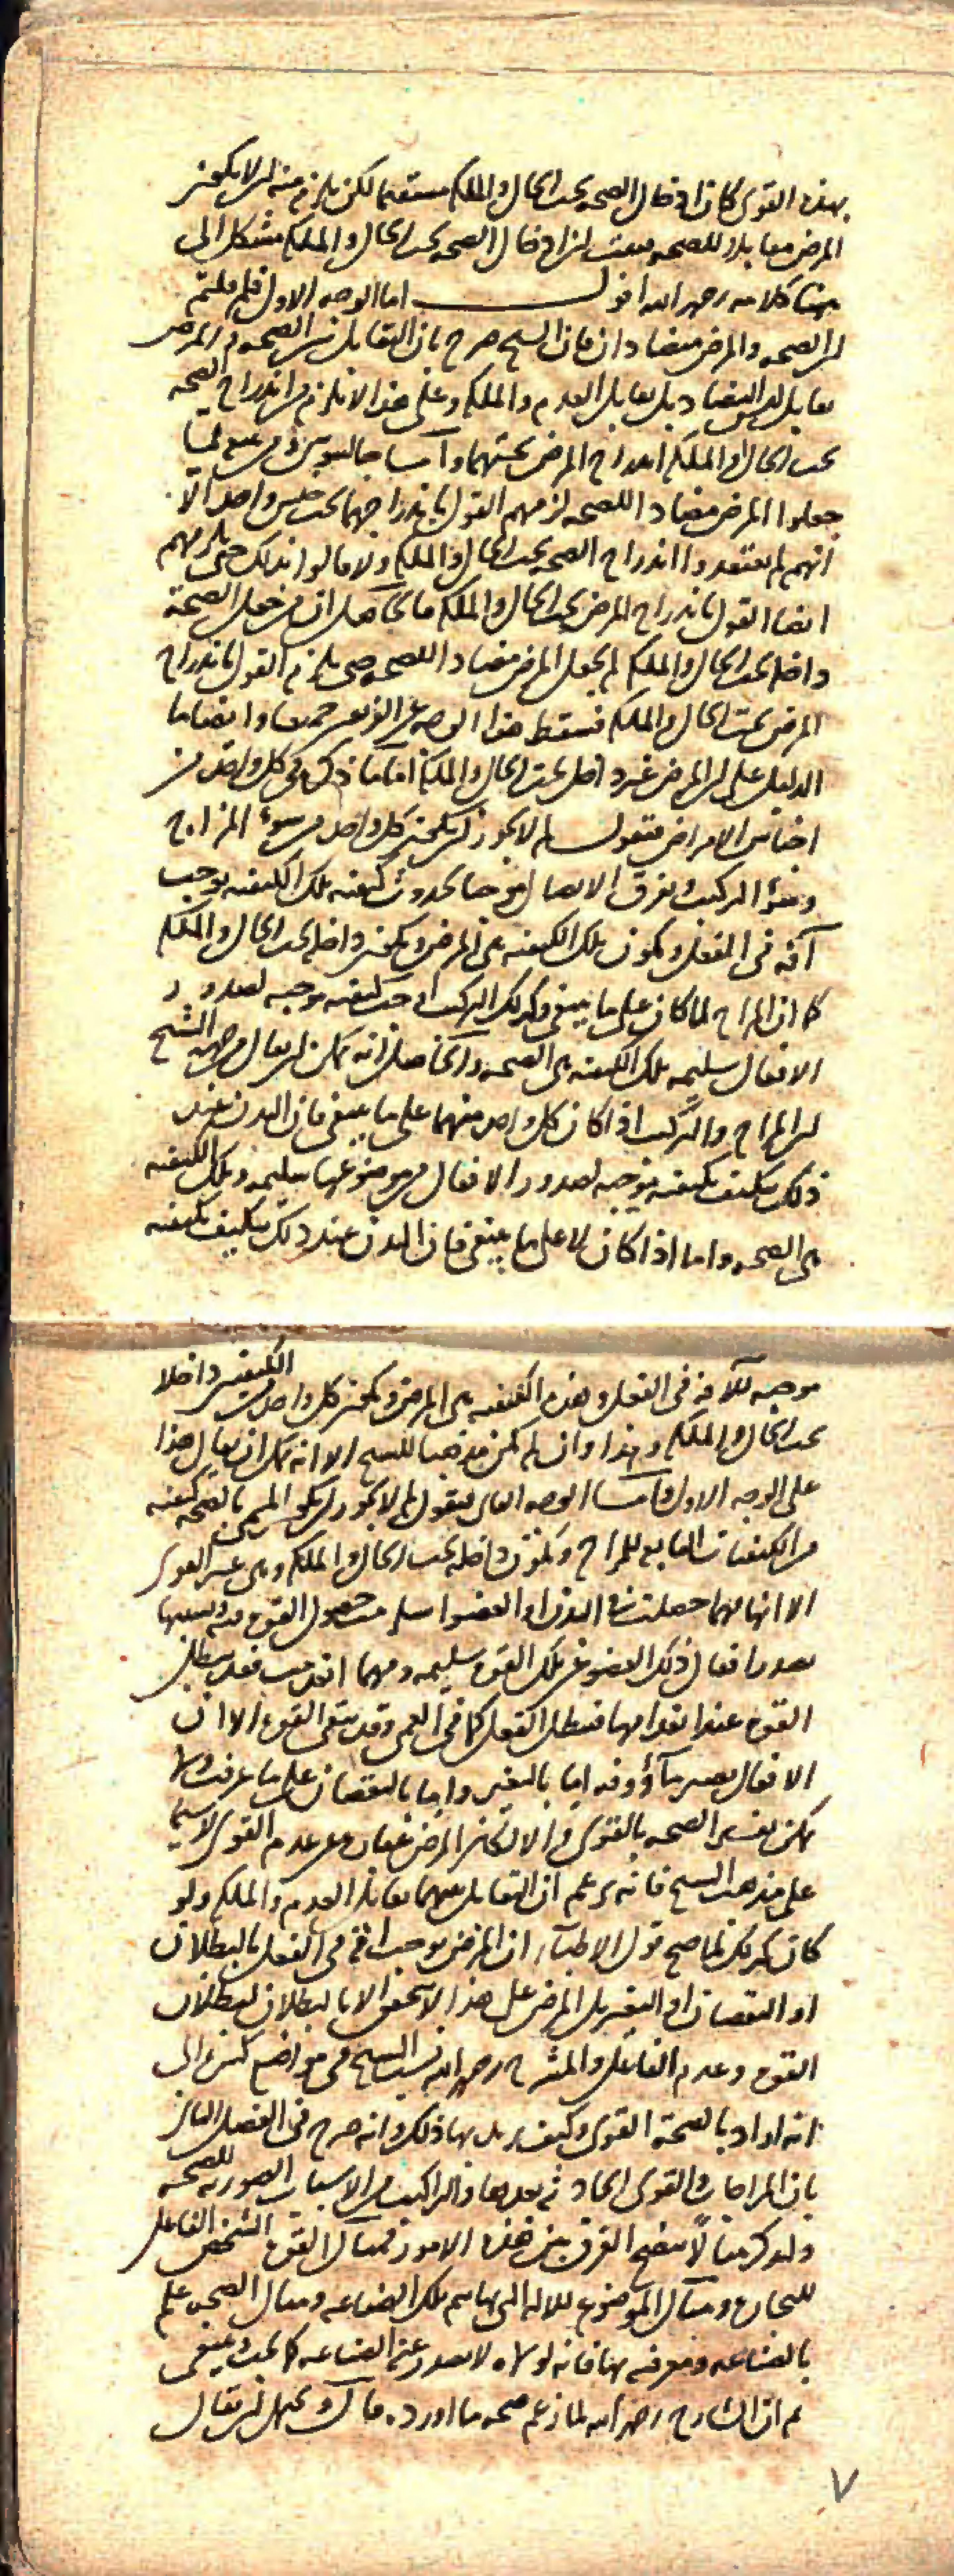 بهذه القوى كان ادخال الصحة تحت الحال والملكة مستقيما لكن يلزم منه ان لا يكون
المرض مقابلا للصحة فثبت ان ادخال الصحة تحت الحال والملكة مشكل الى
هنا كلامه رحمه الله اقول اما الوجه الاول فلم قلتم
ان الصحة والمرض متضادان فان الشيخ صرح بان التقابل بين الصحة والمرض
تقابل ليس التضاد بل تقابل العدم والملكة وعلى هذا لا يلزم من اندراج الصحة
تحت الحال والملكة اندراج المرض تحتهما واما جالينوس ومن
جعلوا المرض مضادا للصحة لزمهم القول باندراجهما تحت جنس واحد الا
انهم لم يعتقدوا اندراج الصحة تحت الحال والملكة ولا قالوا بذلك حتى يلزمهم
ايضا القول باندراج المرض تحت الحال والملكة فالحاصل ان من جعل الصحة
داخلة تحت الحال والملكة لم يجعل المرض مضادا للصحة حتى يلزم القول باندراج
المرض تحت الحال والملكة فسقط هذا الوجه عن الفريقين جميعا واما
الدليل على ان المرض غير داخل تحت الحال والملكة اما ما ذكر في كل واحد من
اجناس الامراض فنقول لم لا يجوز ان يكون كل واحد من سوء المزاج
وسوء التركيب وتفرق الاتصال موجبا لحدوث كيفية تلك الكيفية توجب
آفة في الفعل وتكون تلك الكيفية هي المرض وتكون داخلة تحت الحال والملكة
كما ان المزاج لما كان على ما ينبغي وكذلك التركيب اوجب كيفية موجبة لصدور
الافعال سليمة تلك الكيفية هي الصحة والحاصل انه يمكن ان يقال من جهة الشيخ
ان المزاج والتركيب اذا كان كل واحد منهما على ما ينبغي فان البدن عند
ذلك يتكيف بكيفية موجبة لصدور الافعال من موضوعها سليمة وتلك الكيفية
هي الصحة واما اذا كان لا على ما ينبغي فان البدن عند ذلك يتكيف بكيفية
موجبة للآفة في الفعل وهذه الكيفية هي المرض ويكون كل واحد من الكيفيتين داخلا
تحت الحال والملكة وهذا وان لم يكن مذهبا للشيخ الا انه يمكن ان يقال هذا
على الوجه الاول واما الوجه الثاني فنقول لم لا يجوز ان يكون المسمى بالصحة كيفية
من الكيفيات التابعة للمزاج وتكون داخلة تحت الحال والملكة وهي غير القوى
الا انها مهما حصلت في البدن او العضو حصول القوة فيه
يصدر افعال ذلك العضو عن تلك القوة سليمة ومهما انعدمت فقد تبطل
القوة عند انعدامها فتبطل الفعل كما في العمى وقد تبقى القوة الا ان
الافعال تصير مأووفة اما بالتغير واما بالنقصان على ما عرفت ولا
يمكن تفسير الصحة بالقوى والا لكان المرض عبارة عن عدم القوى لا سيما
على مذهب الشيخ فانه يزعم ان التقابل بينهما تقابل العدم والملكة ولو
كان كذلك لما صح قول الاطباء ان المرض يوجب آفة في الفعل بالبطلان
او النقصان او التغير بل المرض على هذا لا يتحقق الا بالبطلان لبطلان
القوة وعدم الفاعل والشارح رحمه الله نسب الشيخ في مواضع كثيرة الى
انه اراد بالصحة القوى وكيف يريد بها ذلك وانه صرح في الفصل الثاني
بان المزاجات والقوى الحادثة بعدها والتراكيب من الاسباب الصورية للصحة
ولنذكر مثالا يتضح الفرق بين هذه الامور فمثال القوة الشخص الفاعل
للنجارة ومثال الموضوع للآلة التي بها يتم تلك الصناعة ومثال الصحة علمه
بالصناعة ومعرفته بها فانه لولاه لا يصدر عنه الصناعة كما يجب وينبغي
ثم ان الشارح رحمه الله لما زعم صحة ما اورده قال ويحتمل ان يقال
٧